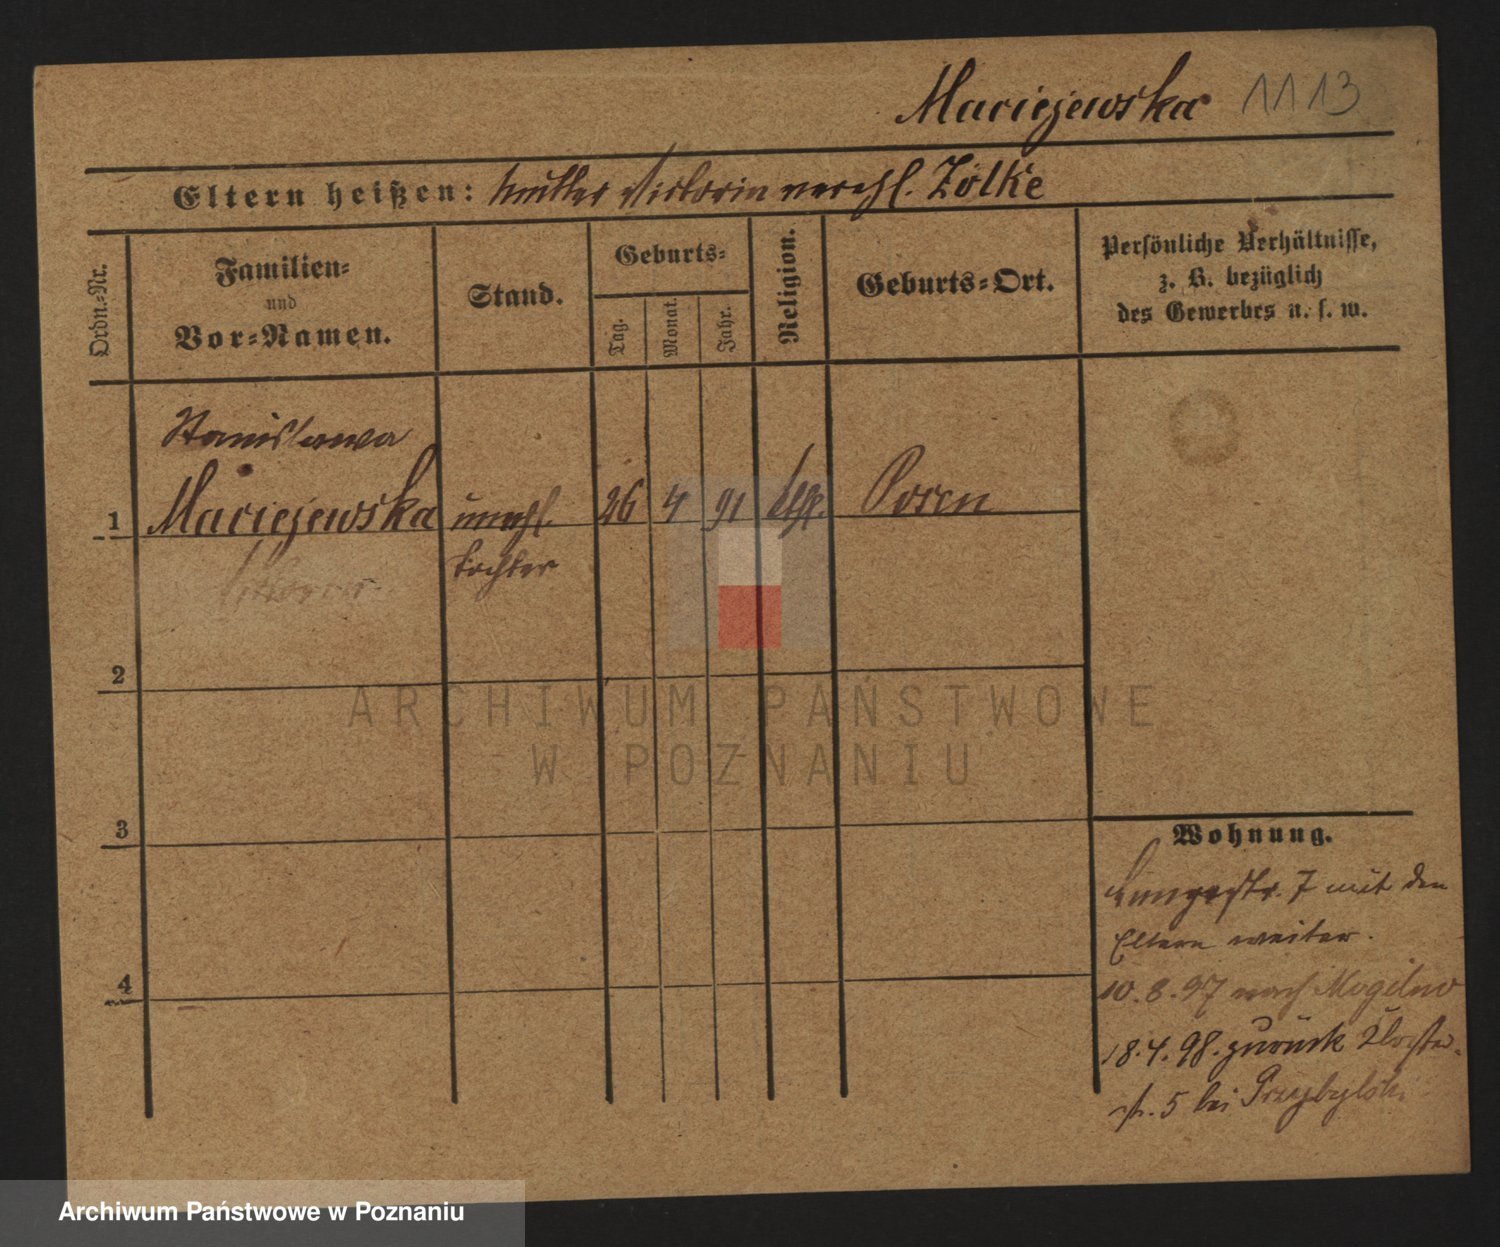 Maciejewska 1113
Eltern heißen: Mutter Victoria verehl. Zölke
Ordn.-Nr.
Familien-
und
Vor-Namen.
Stand.
Geburts-
Tag.
Monat.
Jahr.
Religion.
Geburts-Ort.
Persönliche Verhältnisse,
z. B. bezüglich
des Gewerbes u. s. w.
Stanislawa
1 Maciejewska unehl. 26 4 91 Posen
Tochter
2
3
4
Wohnung.
7 mit den
Eltern weiter.
10.8.97 nach Mogilno
18.4.98. zurück Kloster-
str. 5 bei Przybylski
ARCHIWUM PAŃSTWOWE
W POZNANIU
Archiwum Państwowe w Poznaniu